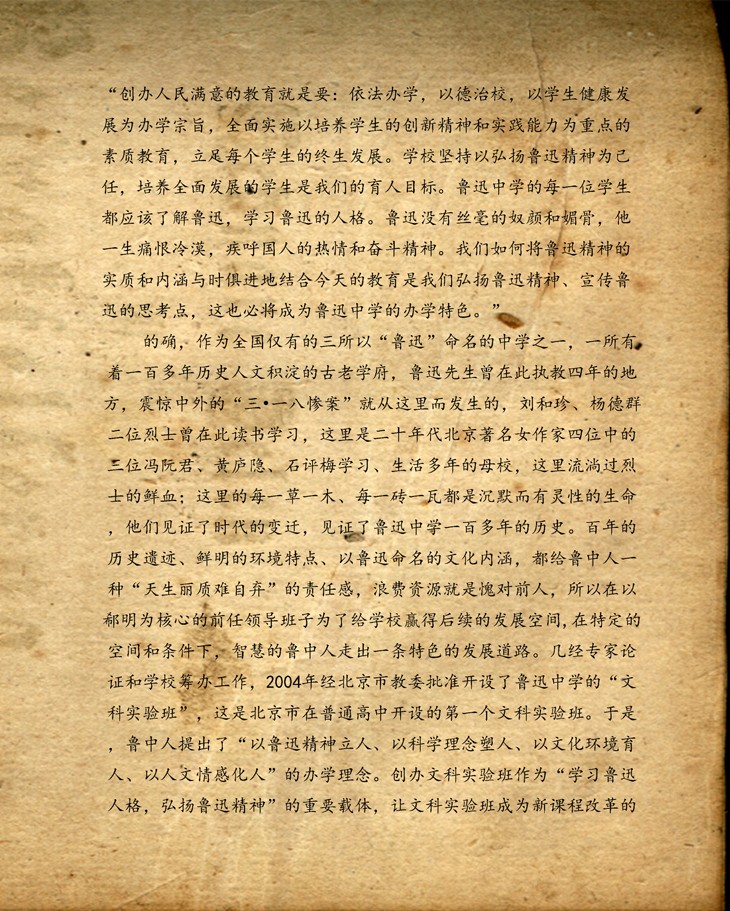 “创办人民满意的教育就是要：依法办学，以德治校，以学生健康发
展为办学宗旨，全面实施以培养学生的创新精神和实践能力为重点的
素质教育，立足每个学生的终生发展。学校坚持以弘扬鲁迅精神为己
任，培养全面发展的学生是我们的育人目标。鲁迅中学的每一位学生
都应该了解鲁迅，学习鲁迅的人格。鲁迅没有丝毫的奴颜和媚骨，他
一生痛恨冷漠，疾呼国人的热情和奋斗精神。我们如何将鲁迅精神的
实质和内涵与时俱进地结合今天的教育是我们弘扬鲁迅精神、宣传鲁
迅的思考点，这也必将成为鲁迅中学的办学特色。”
的确，作为全国仅有的三所以“鲁迅”命名的中学之一，一所有
着一百多年历史人文积淀的古老学府，鲁迅先生曾在此执教四年的地
方，震惊中外的“三•一八惨案”就从这里而发生的，刘和珍、杨德群
二位烈士曾在此读书学习，这里是二十年代北京著名女作家四位中的
三位冯阮君、黄庐隐、石评梅学习、生活多年的母校，这里流淌过烈
士的鲜血；这里的每一草一木、每一砖一瓦都是沉默而有灵性的生命
，他们见证了时代的变迁，见证了鲁迅中学一百多年的历史。百年的
历史遗迹、鲜明的环境特点、以鲁迅命名的文化内涵，都给鲁中人一
种“天生丽质难自弃”的责任感，浪费资源就是愧对前人，所以在以
郗明为核心的前任领导班子为了给学校赢得后续的发展空间,在特定的
空间和条件下，智慧的鲁中人走出一条特色的发展道路。几经专家论
证和学校筹办工作，2004年经北京市教委批准开设了鲁迅中学的“文
科实验班”，这是北京市在普通高中开设的第一个文科实验班。于是
，鲁中人提出了“以鲁迅精神立人、以科学理念塑人、以文化环境育
人、以人文情感化人”的办学理念。创办文科实验班作为“学习鲁迅
人格，弘扬鲁迅精神”的重要载体，让文科实验班成为新课程改革的